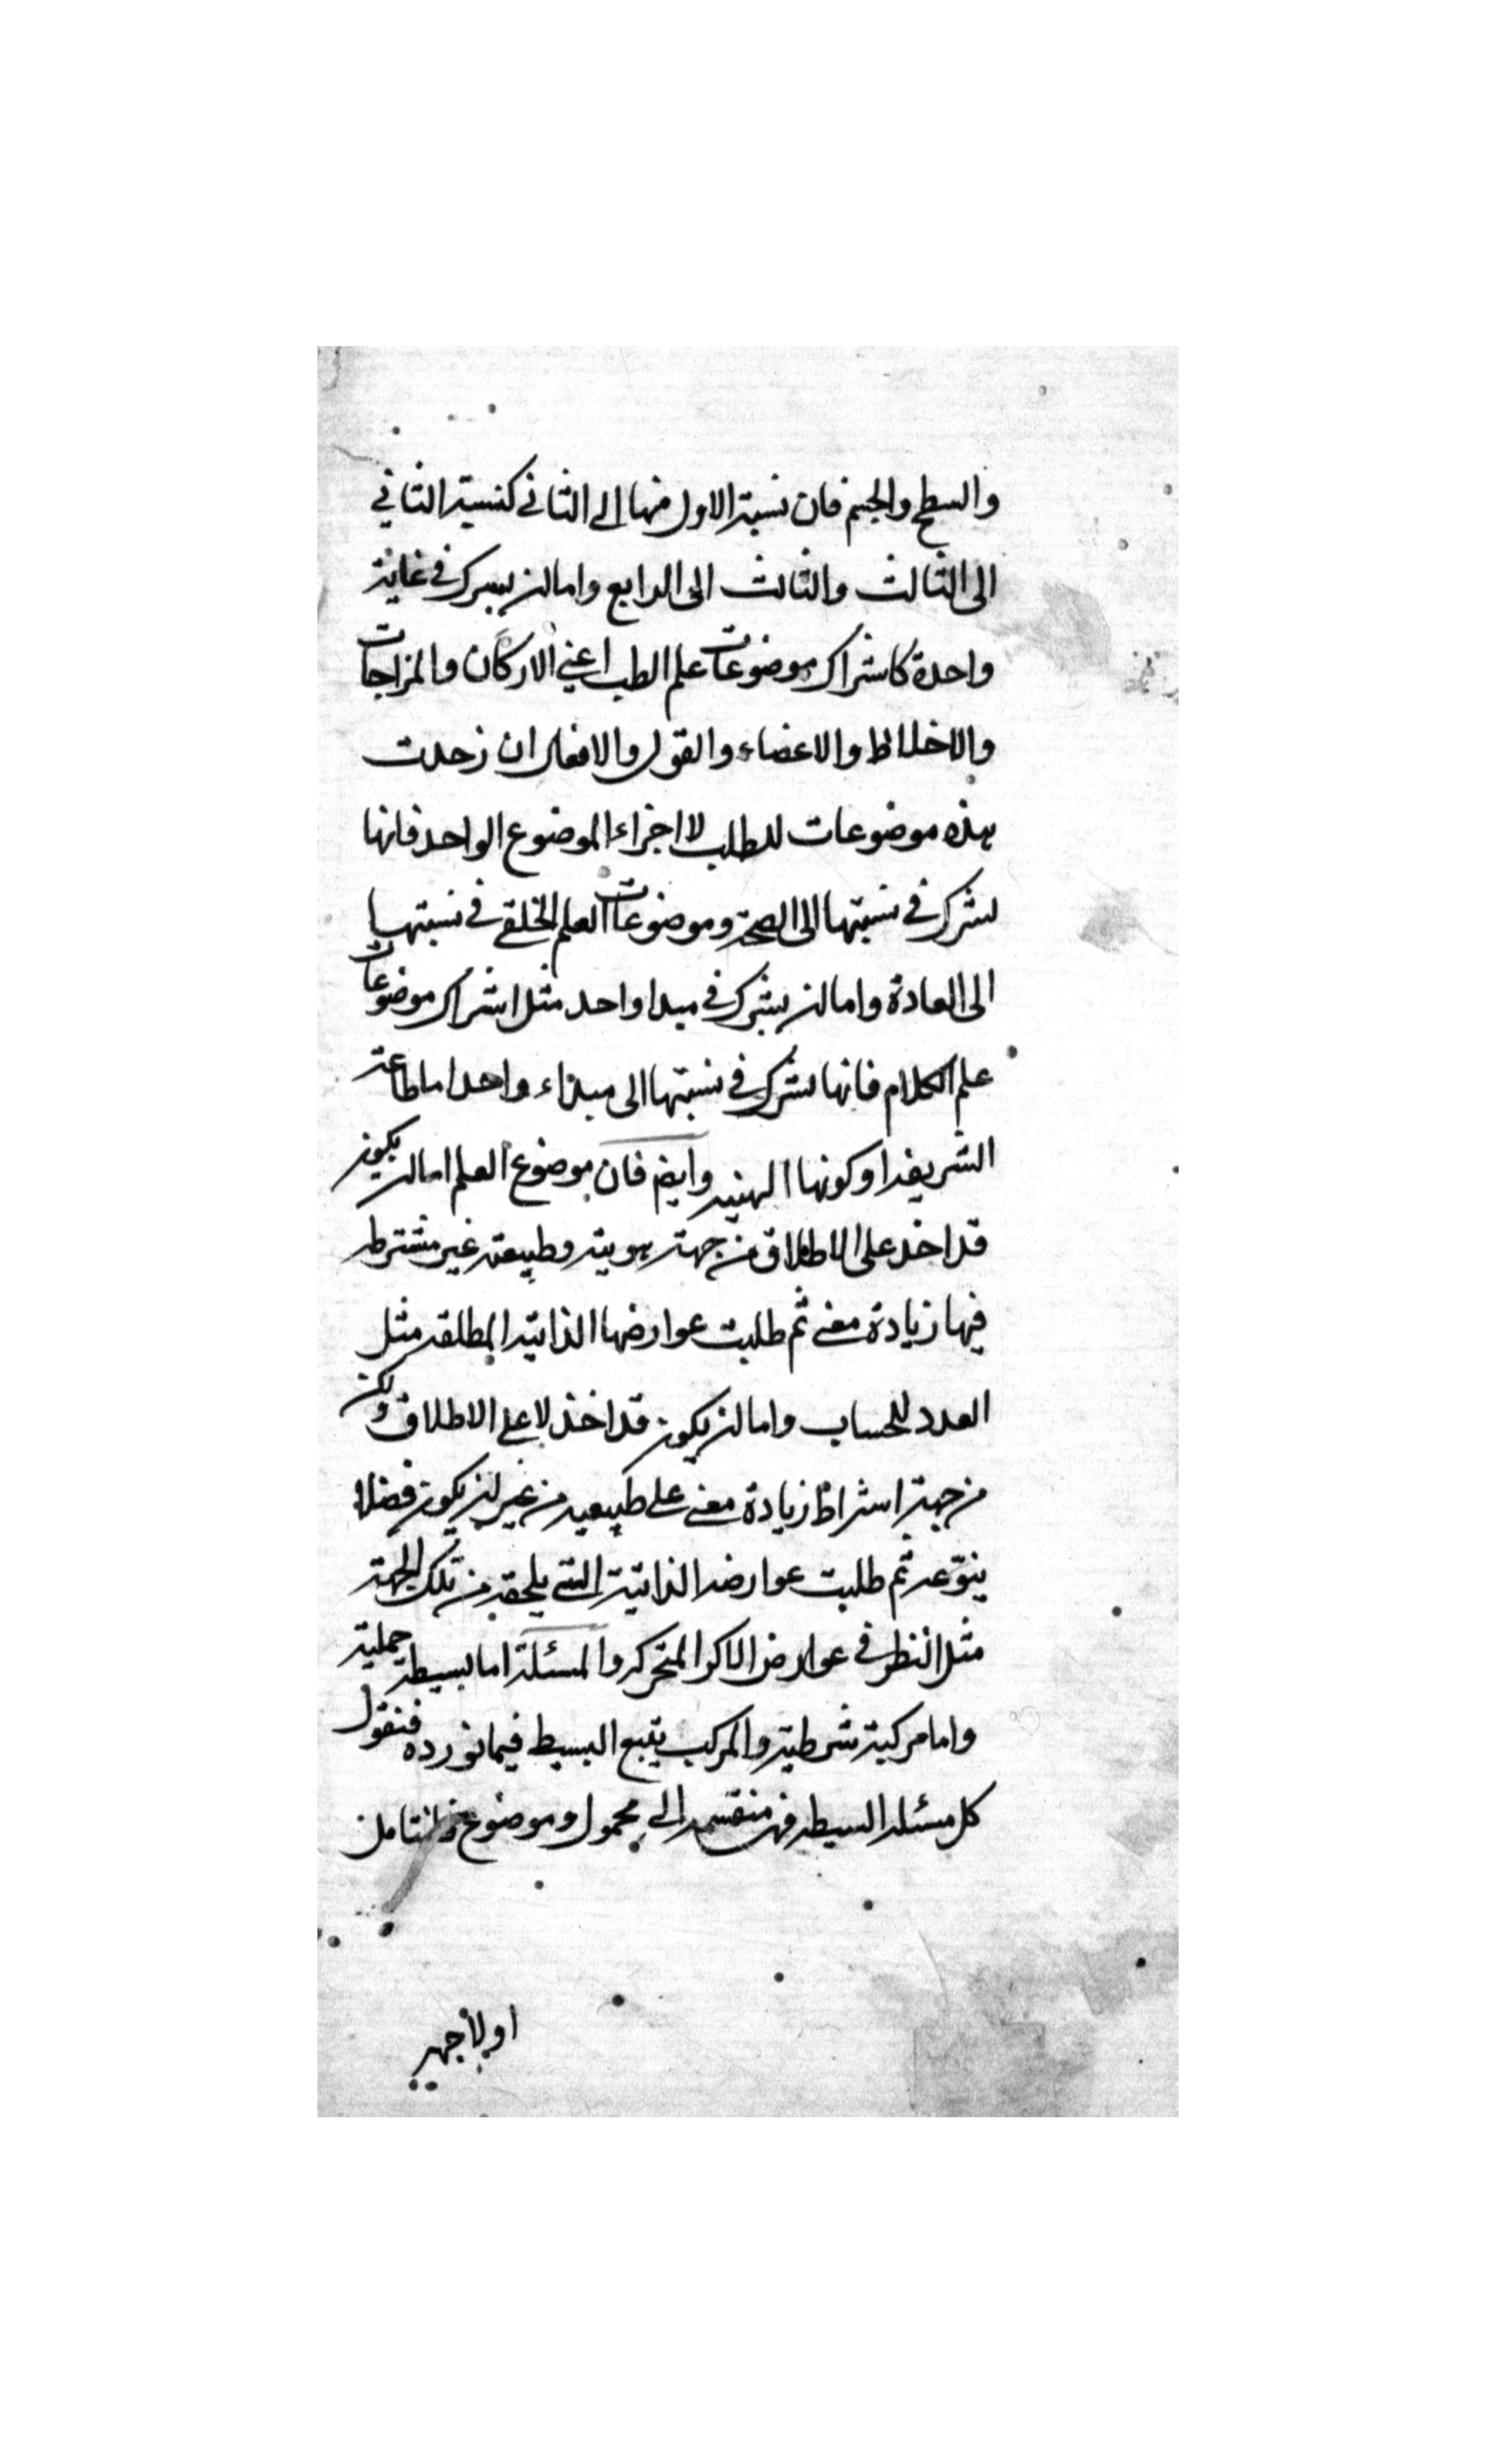 والسطح والجسم فان نسبة الاول منها الى الثاني كنسبة الثاني
الى الثالث والثالث الى الرابع واما ان يشترك في غاية
واحدة كاشتراك موضوعات علم الطب اعني الاركان والمزاجات
والاخلاط والاعضاء والقول والافعال ان زحدت
هذه موضوعات للطب لا اجزاء الموضوع الواحد فانها
تشترك في نسبتها الى الصحة وموضوعات العلم الخلقي في نسبتها
الى العادة واما ان يشترك في مبدا واحد مثل اشتراك موضوعات
علم الكلام فانها تشترك في نسبتها الى مبداء واحد اما طاعة
الشريفه او كونها الهيه وايضم فان موضوع العلم اما ان يكون
قد اخذ على الاطلاق من جهة هويته وطبيعته غير مشترط
فيها زيادة معنى ثم طلبت عوارضها الذاتية المطلقه مثل
العدد للحساب واما ان يكون قد اخذ لا على الاطلاق ولكن
من جهة اشتراط زيادة معنى على طبيعيه من غير ان يكون فصلا
ينوّعه ثم طلبت عوارضه الذاتية التي يلحقه من تلك الجهة
مثل النظر في عوارض الاكر المتحركه والمسئلة اما بسيطة حملية
واما مركبة شرطية والمركب يتبع البسيط فيما نورده فنقول
كل مسئله البسيطه فهى منقسمه الى محمول وموضوع فلنتامل
اولا جهة